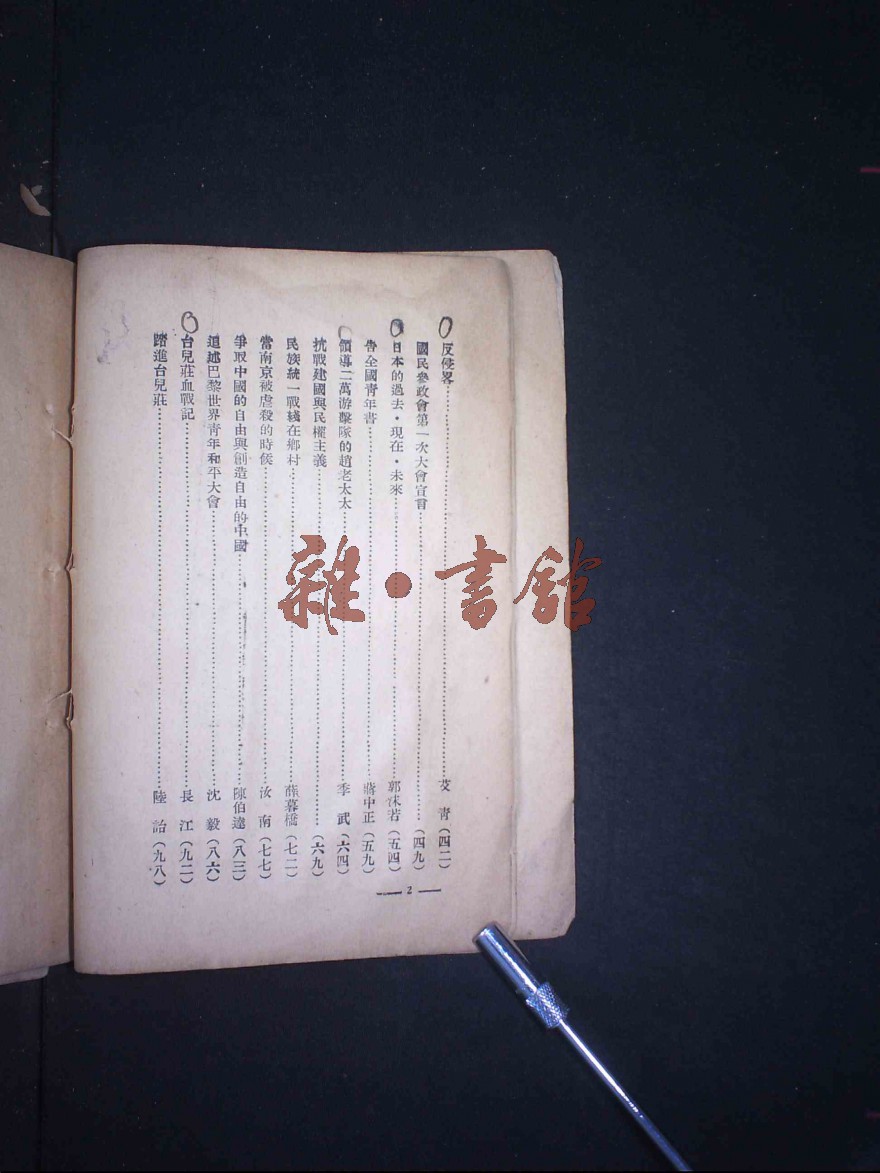 反侵畧……艾 青(四二)
國民參政會第一次大會宣言……(四九)
日本的過去·現在·未來……郭沫若(五四)
告全國青年書……蔣中正(五九)
領導二萬游擊隊的趙老太太……季 武(六四)
抗戰建國與民權主義……(六九)
民族統一戰綫在鄉村……薛暮橋(七二)
當南京被虐殺的時候……汝 南(七七)
爭取中國的自由與創造自由的中國……陳伯達(八三)
追述巴黎世界青年和平大會……沈 毅(八六)
台兒莊血戰記……長 江(九二)
踏進台兒莊……陸 詒(九八)
— 2 —
雜·書館